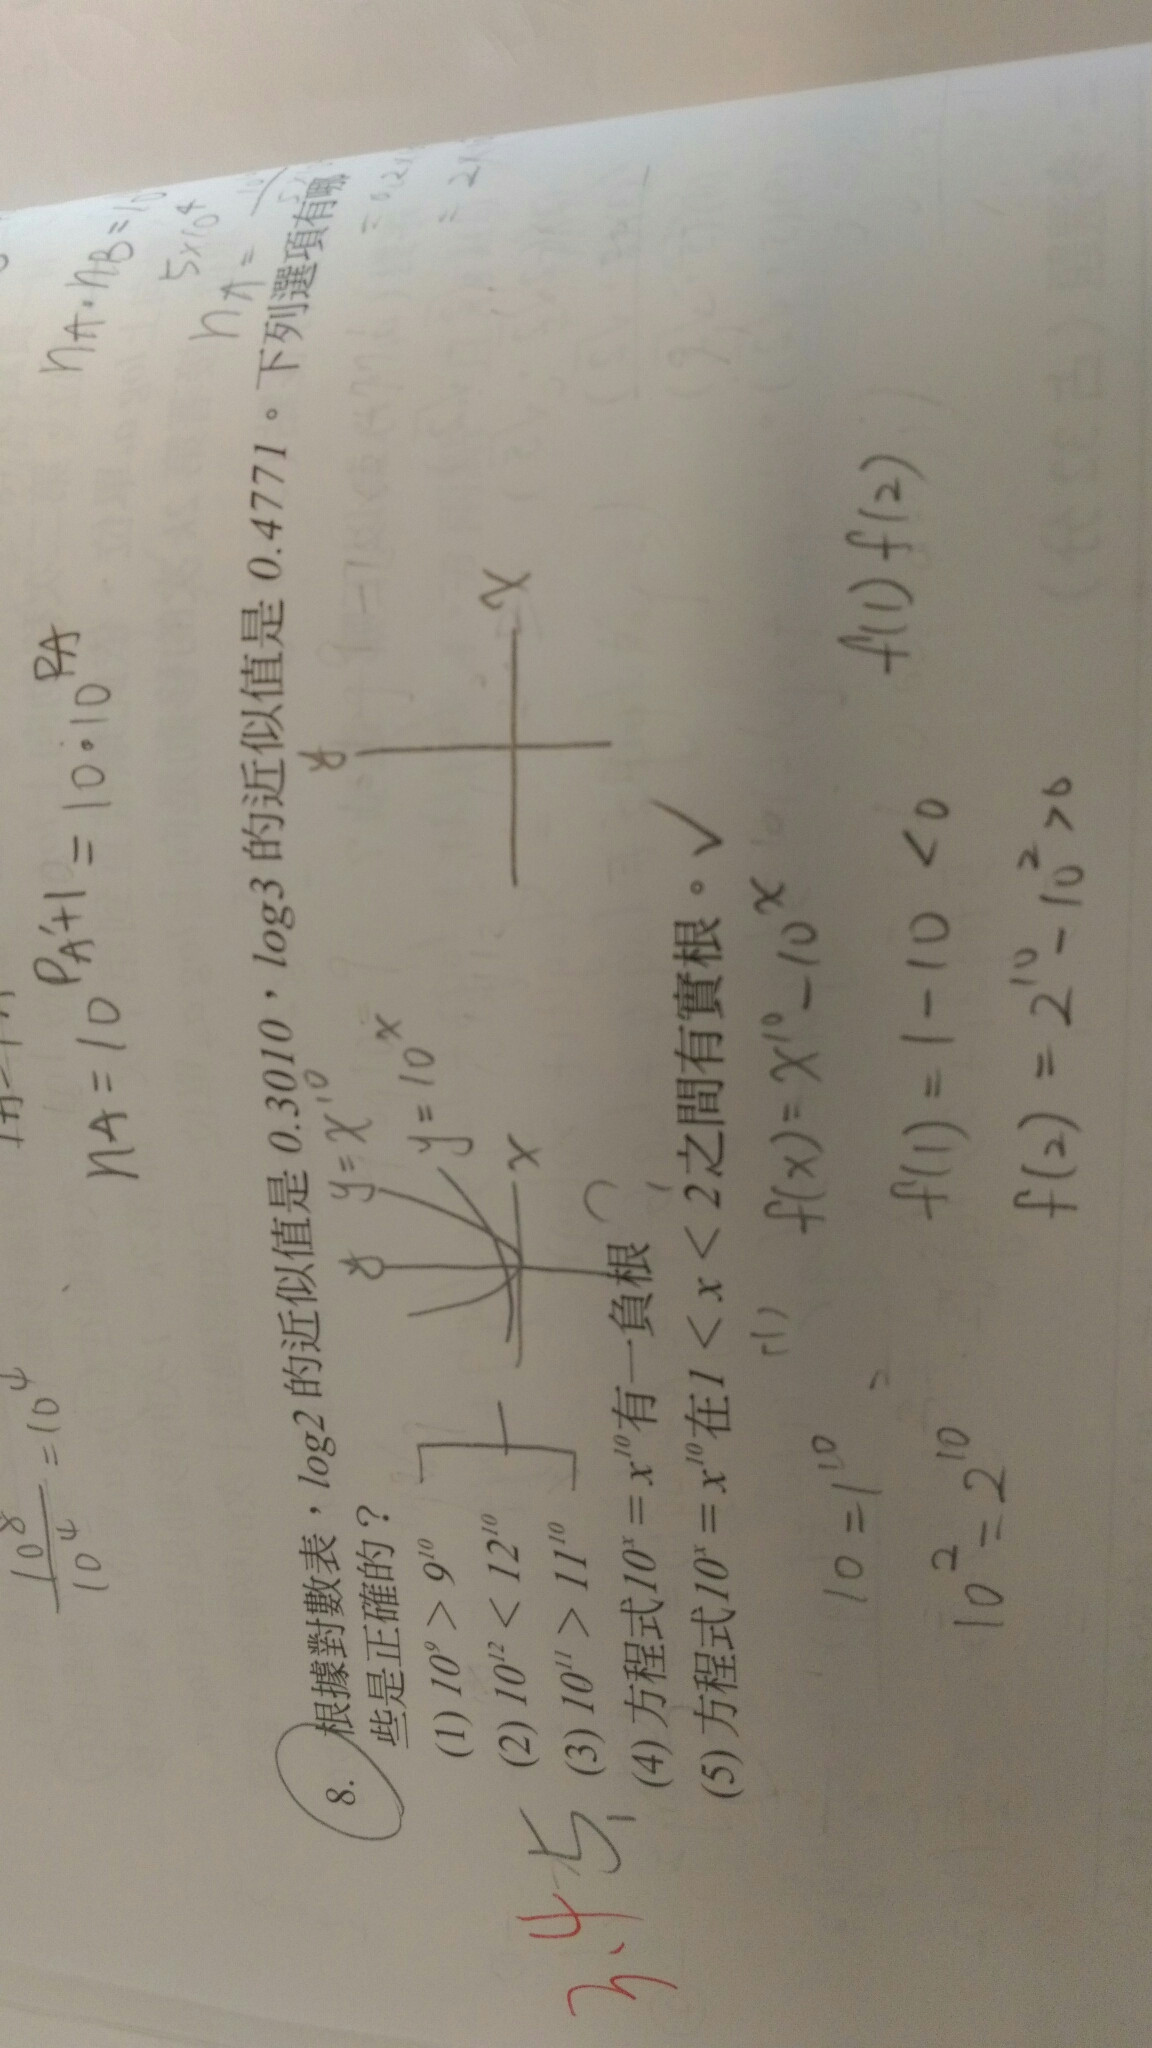 10⁸
10⁴
=10⁴
nA=10^PA'+1 = 10·10^PA
nA·nB=10
5×10⁴
nA=
8. 根據對數表，log2 的近似值是 0.3010，log3 的近似值是 0.4771。下列選項有哪
些是正確的？
(1) 10⁹ > 9¹⁰
(2) 10¹² < 12¹⁰
(3) 10¹¹ > 11¹⁰
(4) 方程式10ˣ = x¹⁰有一負根
(5) 方程式10ˣ = x¹⁰在1 < x < 2之間有實根。✓
y
y=x¹⁰
y=10ˣ
x
y
x
3,4
5
10=1¹⁰
10²=2¹⁰
f(x)=x¹⁰-10ˣ
f(1)=1-10<0
f(2)=2¹⁰-10²>0
f(1)f(2)